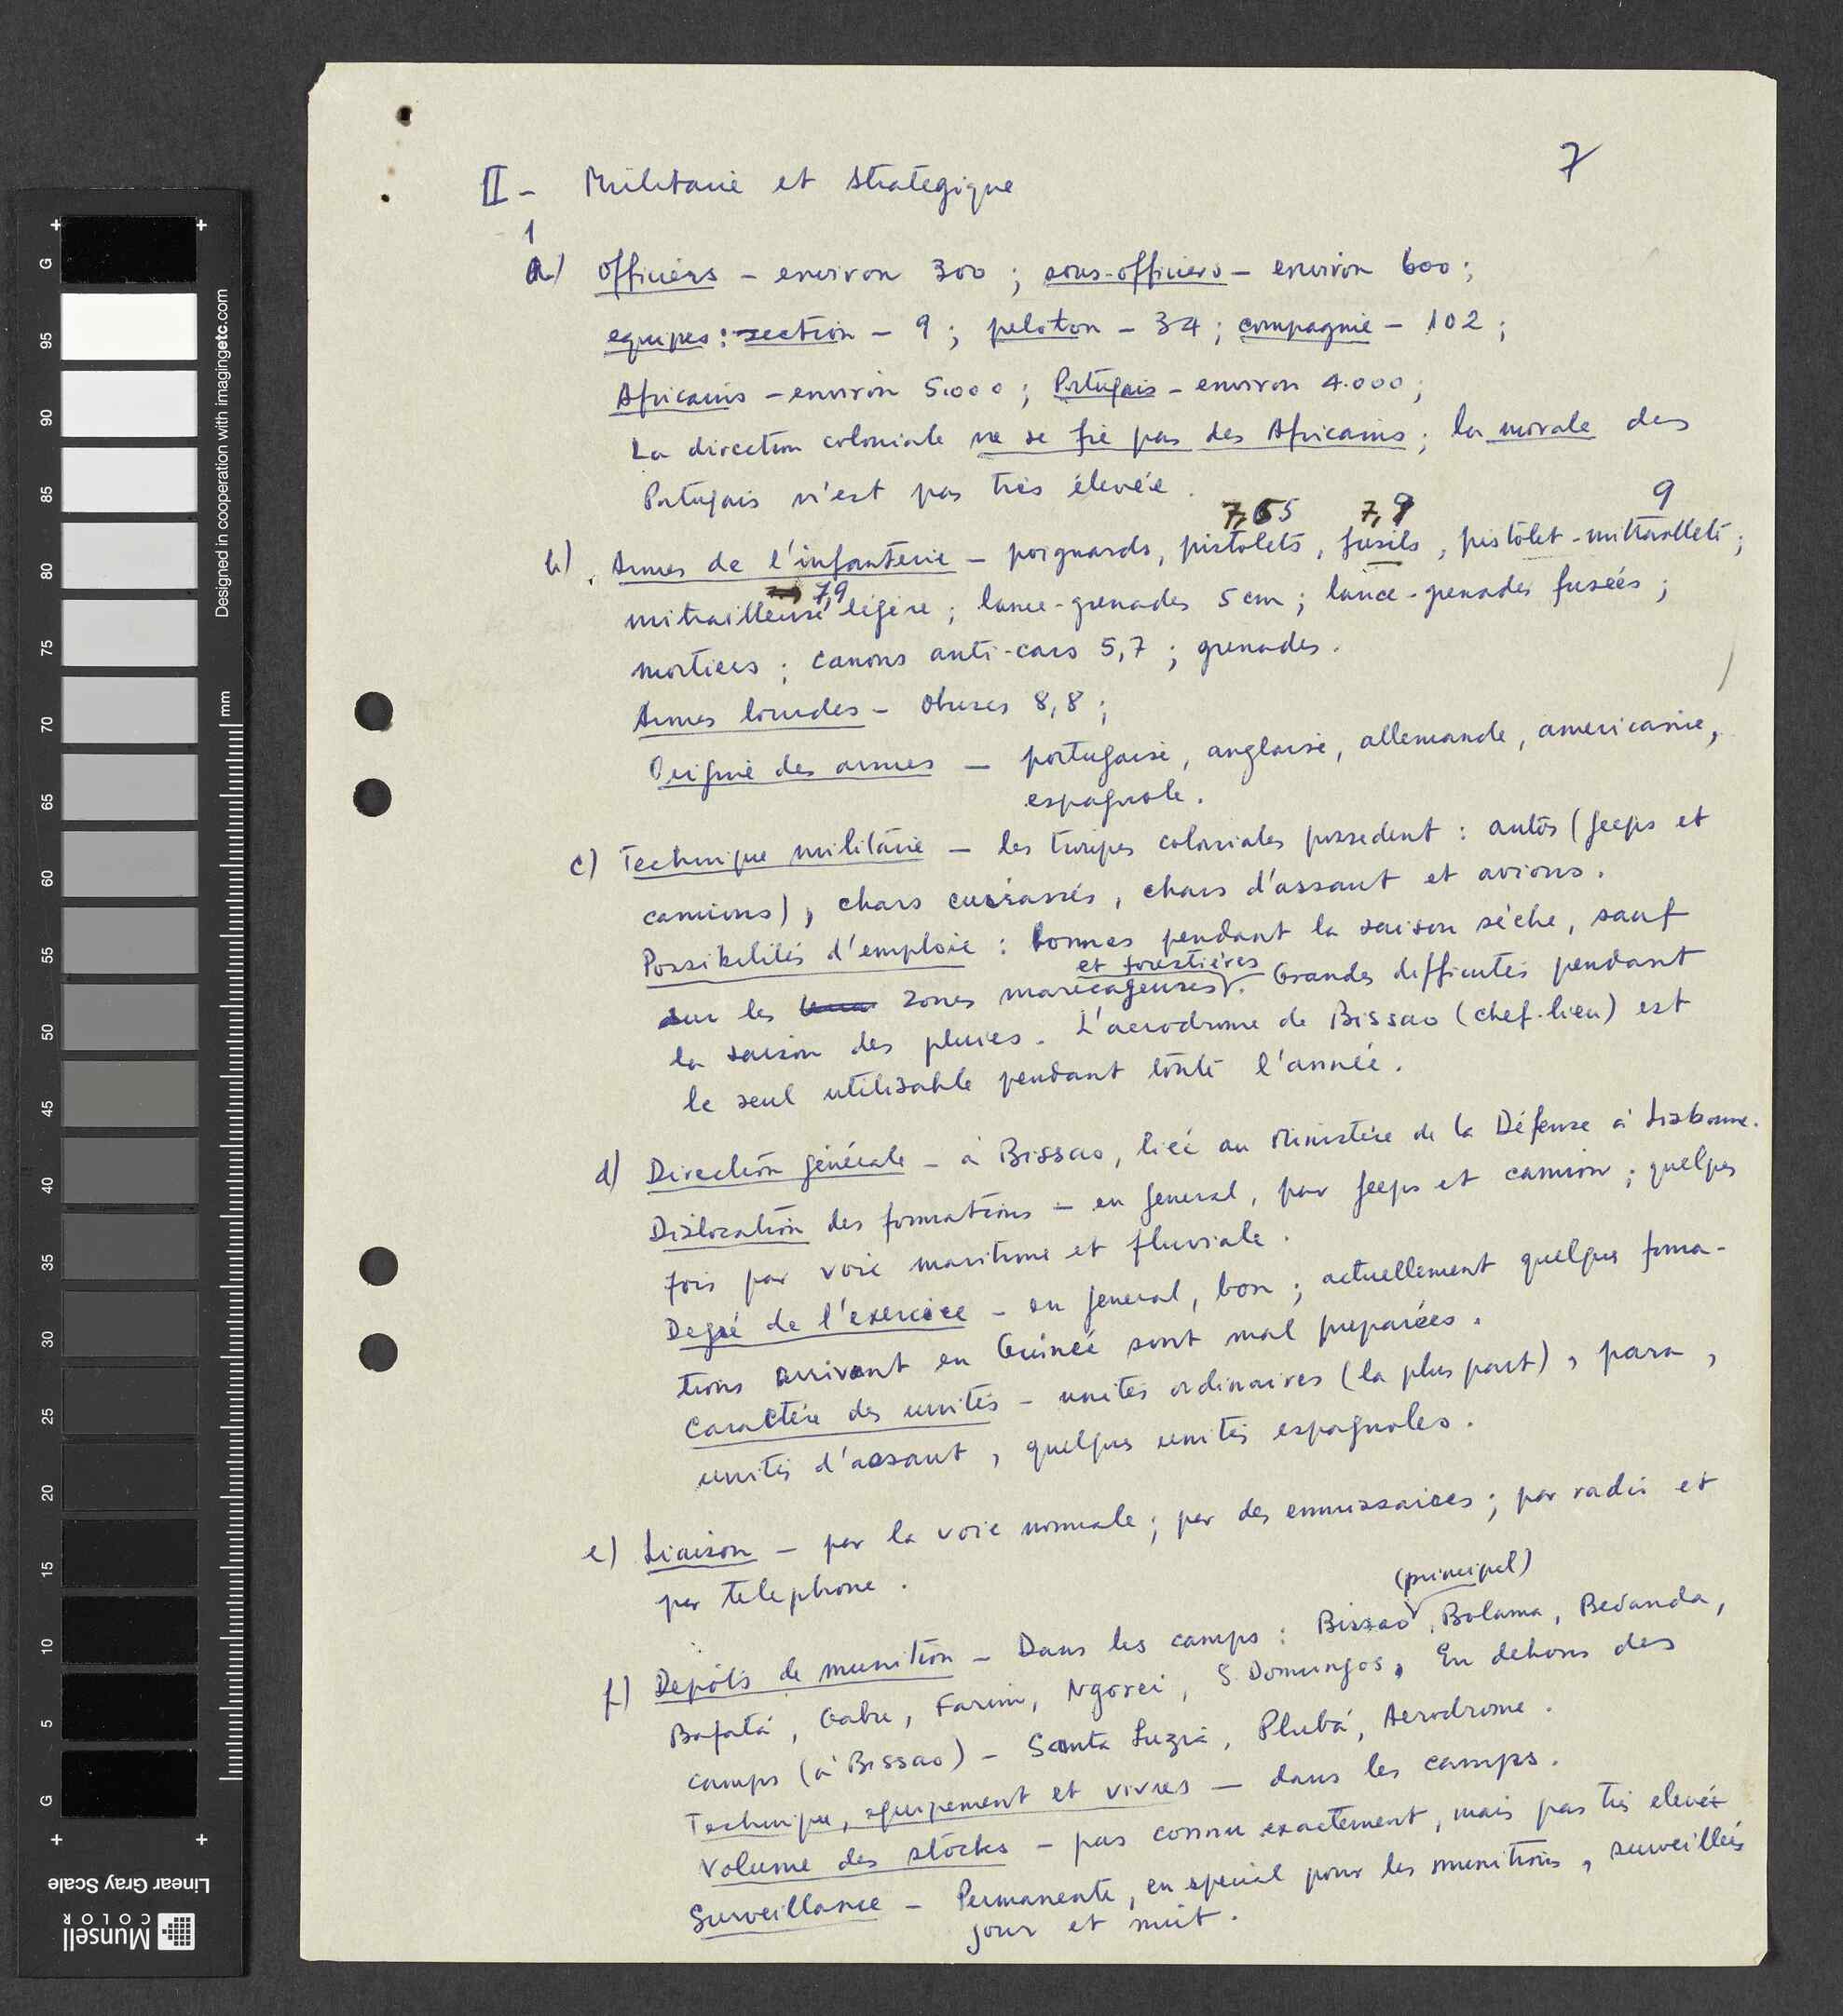 7
II - Militaire et stratégique
1
a) Officiers - environ 300 ; sous-officiers - environ 600 ;
equipes : section - 9 ; peloton - 34 ; compagnie - 102 ;
Africains - environ 5.000 ; Portugais - environ 4.000 ;
La direction coloniale ne se fie pas des Africains ; la morale des
Portugais n'est pas très élevée.
7,65 7,9 9
b) Armes de l'infanterie - poignards, pistolets, fusils, pistolet-mitraillete ;
7,9
mitrailleuse légère ; lance-grenades 5 cm ; lance-grenades fusées ;
mortiers ; canons anti-cars 5,7 ; grenades.
Armes lourdes - obuses 8,8 ;
Origine des armes - portugaise, anglaise, allemande, americaine,
espagnole.
c) Technique militaire - les troupes coloniales possedent : autos (jeeps et
camions), chars cuirassés, chars d'assaut et avions.
Possibilités d'emploie : bonnes pendant la saison sèche, sauf
et forestières
sur les zones marécageuses. Grandes difficutés pendant
la saison des pluies. L'aerodrome de Bissao (chef-lieu) est
le seul utilisable pendant toute l'année.
d) Direction générale - à Bissao, liée au Ministère de la Défense à Lisbonne.
Dislocation des formations - en general, par jeeps et camion ; quelques
fois par voie maritime et fluviale.
Degré de l'exercice - en general, bon ; actuellement quelques forma-
tions arrivant en Guinée sont mal preparées.
Caractère des unités - unités ordinaires (la plus part), para,
unités d'assaut, quelques unités espagnoles.
e) Liaison - par la voie normale ; par des emmissaires ; par radio et
par telephone.
(principal)
f) Depôts de munition - Dans les camps : Bissao, Bolama, Bedanda,
Bafatá, Gabu, Farim, Ngorei, S. Domingos. En dehors des
camps (à Bissao) - Santa Luzia, Plubá, Aerodrome.
Technique, equipement et vivres - dans les camps.
Volume des stocks - pas connu exactement, mais pas très elevée
Surveillance - Permanente, en special pour les munitions, surveillées
jour et nuit.
Designed in cooperation with imagingetc.com
mm
G
95
90
85
80
75
70
65
60
55
50
45
40
35
30
25
20
15
10
5
G
Linear Gray Scale
Munsell
COLOR